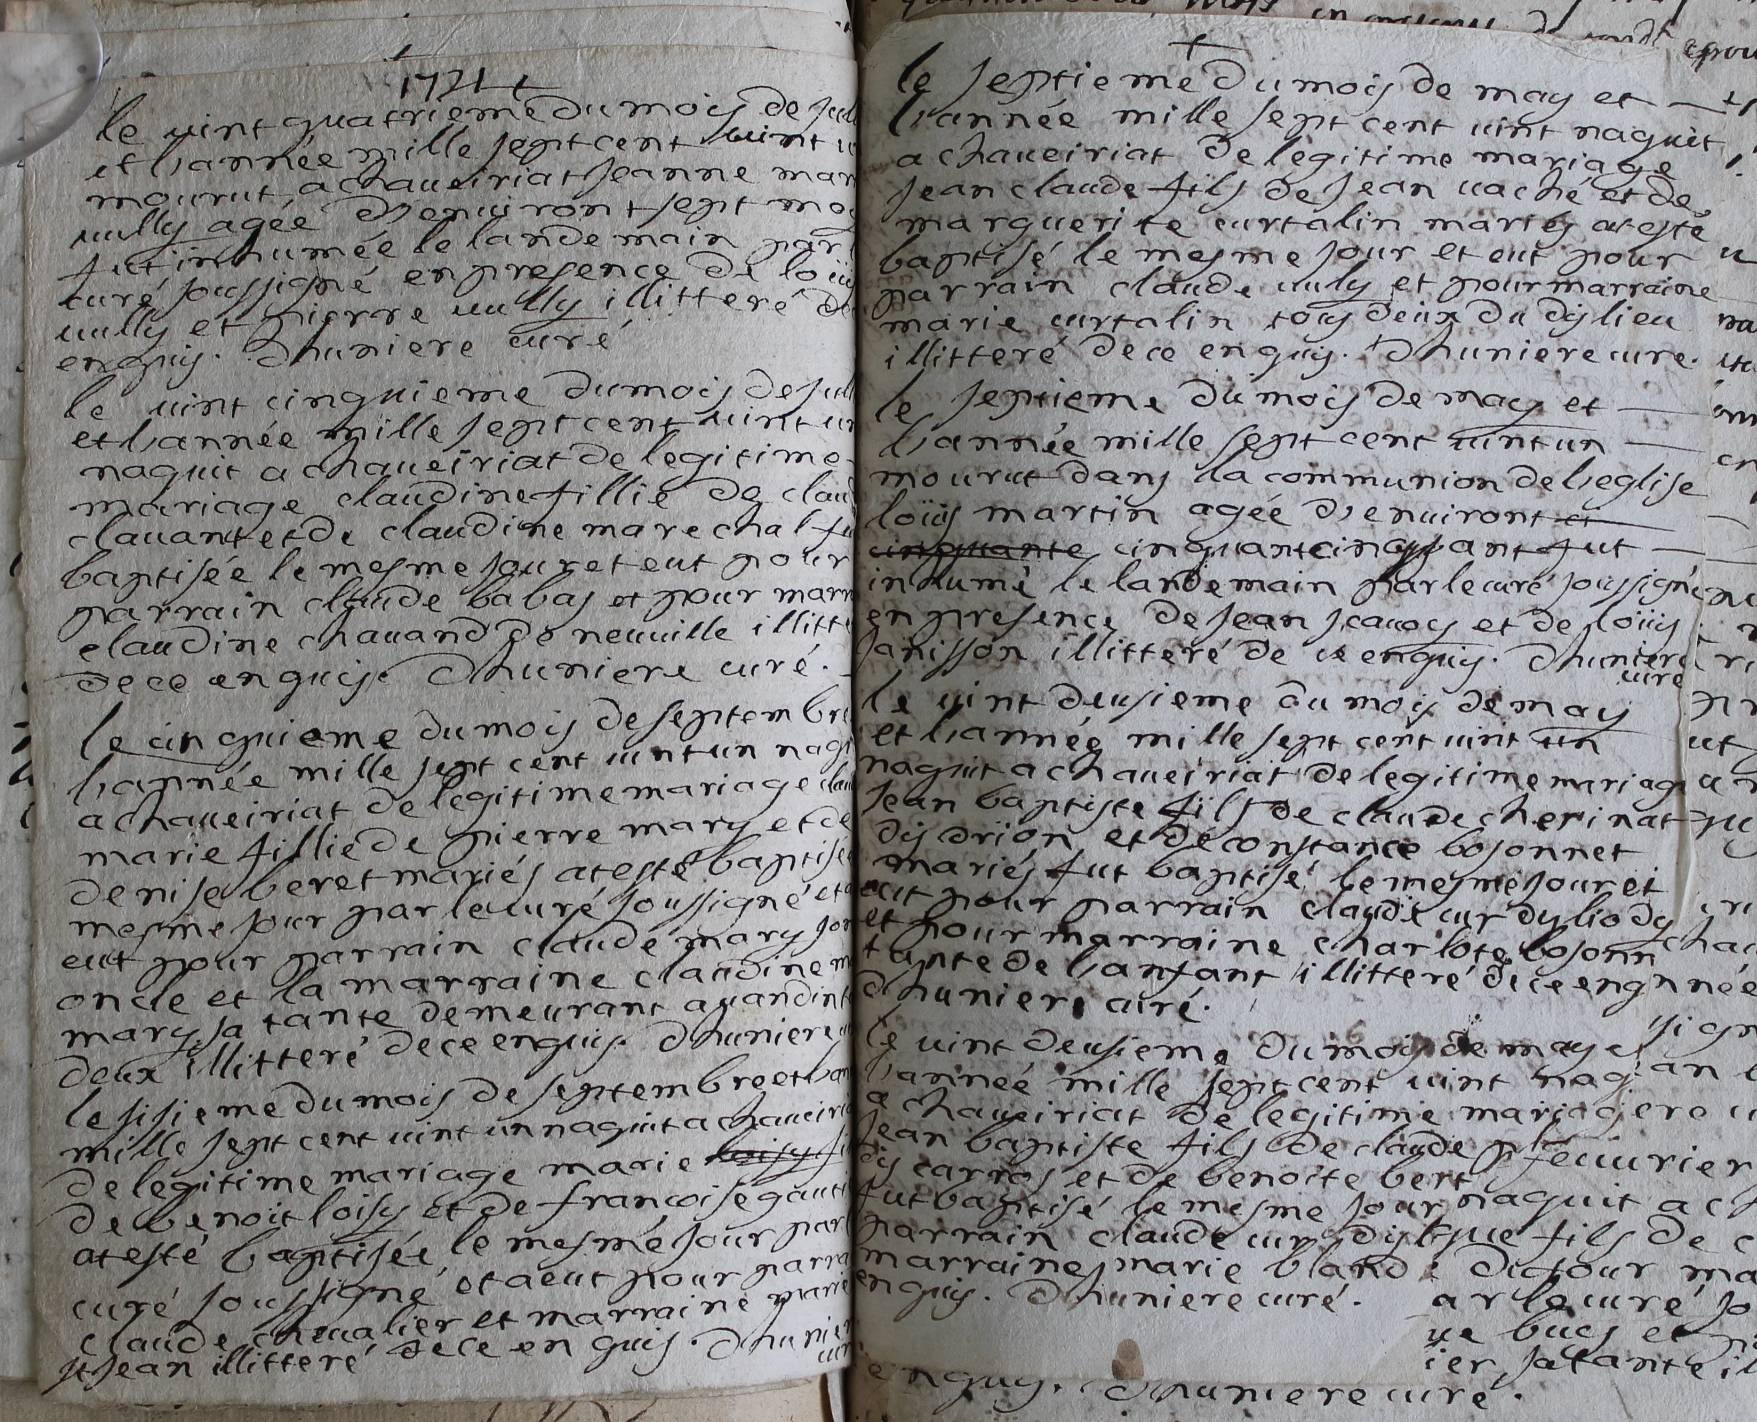 1721
le vint quatrieme du mois de juil
et l'année mille sept cent vint u
mourut a chaveiriat jeanne mar
vully agée d'environt sept moy
fut inhumée le landemain par l
curé soussigné en presence de loüis
vully et pierre vully illitteré de
enquis. Dhuniere curé
le vint cinquieme du mois de juill
et l'année mille sept cent vint un
naquit a chaveiriat de legitime
mariage claudine fillie de claud
clavant et de claudine marechal fu
baptisée le mesme jour et eut pour
parrain claude babas et pour marr
claudine chavand de neuville illitte
de ce enquis. Dhuniere curé.
le cinquieme du mois de septembre
l'année mille sept cent vint un naqu
a chaveiriat de legitime mariage clau
marie fillie de pierre mary et de
denise beret mariés at esté baptisé
mesme jour par le curé soussigné et a
eut pour parrain claude mary son
oncle et la marraine claudine m
mary sa tante demeurant a vandint
deux illitteré de ce enquis. Dhuniere cu
le sisieme du mois de septembre et l'an
mille sept cent vint un naquit a chaveiria
de legitime mariage marie loisy fi
de benoit loisy et de francoise gauti
at esté baptisée le mesme jour par l
curé soussigné et a eut pour parra
claude chevalier et marraine marie
st Jean illitteré de ce enquis. Dhunier
cur
le septieme du mois de may et
l'année mille sept cent vint naquit
a chaveiriat de legitime mariage
jean claude fils de jean vaché et de
marguerite curtalin mariés at esté
baptisé le mesme jour et eut pour
parrain claude vuly et pour marraine
marie curtalin tous deux du dys lieu
illitteré de ce enquis. Dhuniere cure.
le septieme du mois de may et
l'année mille sept cent vint un
mourut dans la communion de l'eglise
loüis martin agée d'environt et
cinquante cinquante cinq ant fut
inhumé le landemain par le curé soussigné
en presence de jean et de loüis
janisson illitteré de ce enquis. Dhuniere
curé
le vint deusieme du mois de may
et l'année mille sept cent vint un
naquit a chaveiriat de legitime mariage
jean baptiste fils de claude cherinat
dis drion et de constance bosonnet
mariés fut baptisé le mesme jour et
eut pour parrain claude cur dylio dy
et pour marraine charlote bosonn
tante de l'anfant illitteré de ce enq
Dhuniere curé.
le vint deusieme du mois de may e
l'année mille sept cent vint naq
a chaveiriat de legitime mariag
jean baptiste fils de claude p
dis carros et de benoite bert
fut baptisé le mesme jour
parrain claude cur dyl
marraine marie bland
enquis. Dhuniere curé.
naquit a ch
que fils de c
Dufour ma
ar le curé so
ue bucs et
ier sa tante il
enquis. Dhuniere curé.